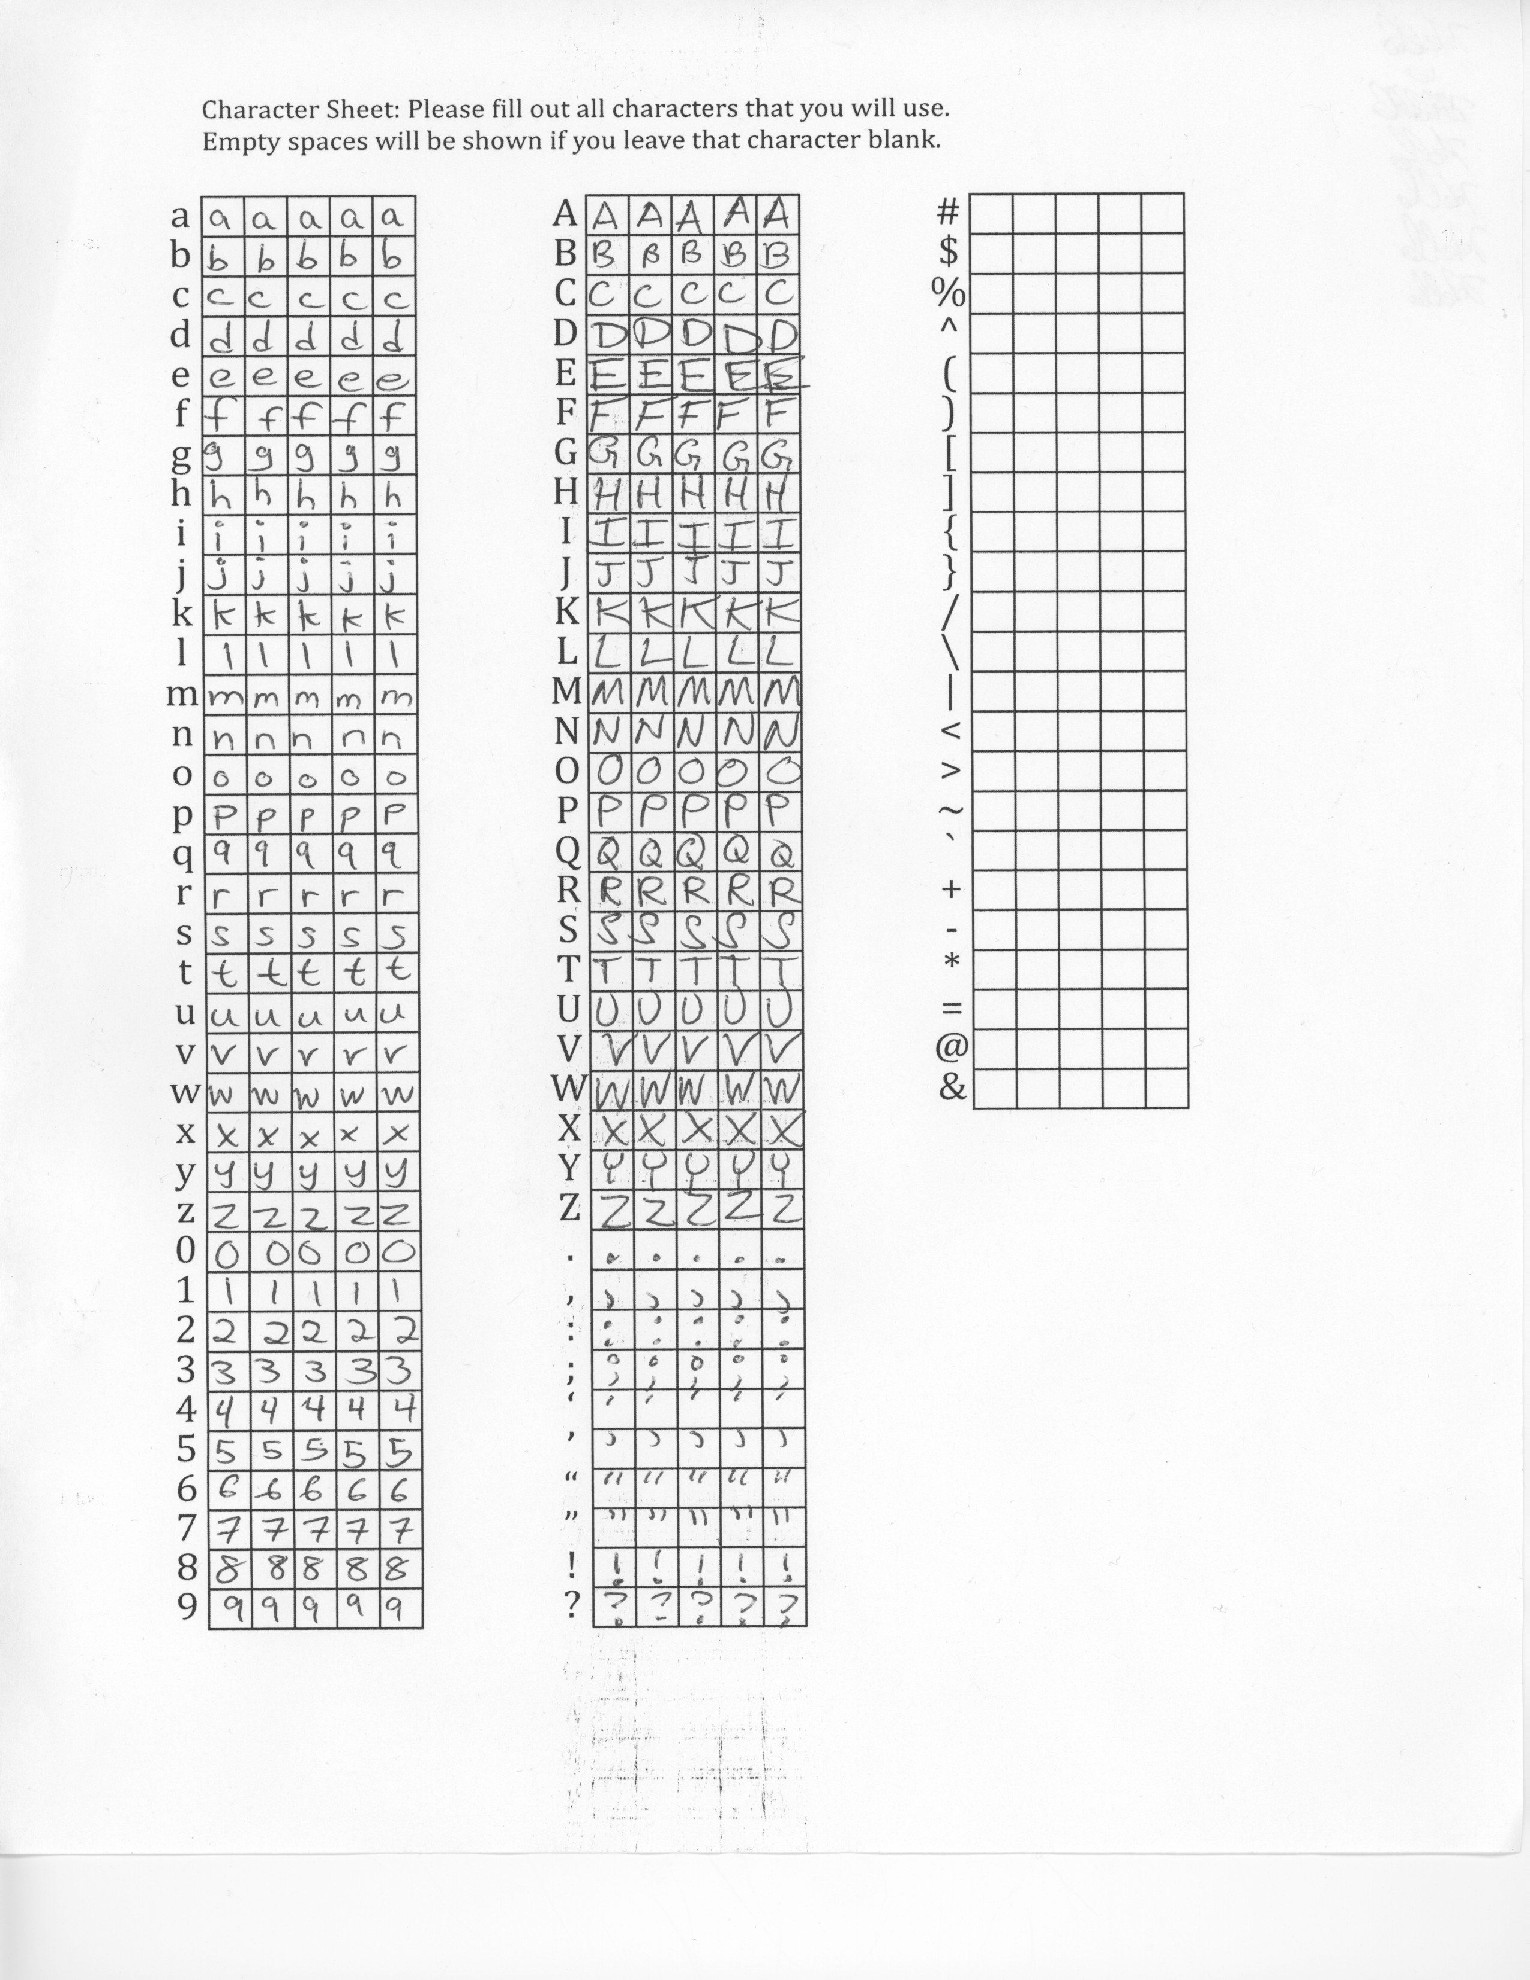 Character Sheet: Please fill out all characters that you will use.
Empty spaces will be shown if you leave that character blank.
a a a a a a
b b b b b b
c c c c c c
d d d d d d
e e e e e e
f f f f f f
g g g g g g
h h h h h h
i i i i i i
j j j j j j
k k k k k k
l l l l l l
m m m m m m
n n n n n n
o o o o o o
p p p p p p
q q q q q q
r r r r r r
s s s s s s
t t t t t t
u u u u u u
v v v v v v
w w w w w w
x x x x x x
y y y y y y
z z z z z z
0 0 0 0 0 0
1 1 1 1 1 1
2 2 2 2 2 2
3 3 3 3 3 3
4 4 4 4 4 4
5 5 5 5 5 5
6 6 6 6 6 6
7 7 7 7 7 7
8 8 8 8 8 8
9 9 9 9 9 9
A A A A A A
B B B B B B
C C C C C C
D D D D D D
E E E E E E
F F F F F F
G G G G G G
H H H H H H
I I I I I I
J J J J J J
K K K K K K
L L L L L L
M M M M M M
N N N N N N
O O O O O O
P P P P P P
Q Q Q Q Q Q
R R R R R R
S S S S S S
T T T T T T
U U U U U U
V V V V V V
W W W W W W
X X X X X X
Y Y Y Y Y Y
Z Z Z Z Z Z
. . . . . .
, , , , , ,
: : : : : :
; ; ; ; ; ;
‘ ‘ ‘ ‘ ‘ ‘
’ ’ ’ ’ ’ ’
“ “ “ “ “ “
” ” ” ” ” ”
! ! ! ! ! !
? ? ? ? ? ?
#
$
%
^
(
)
[
]
{
}
/
\
|
<
>
~
`
+
-
*
=
@
&